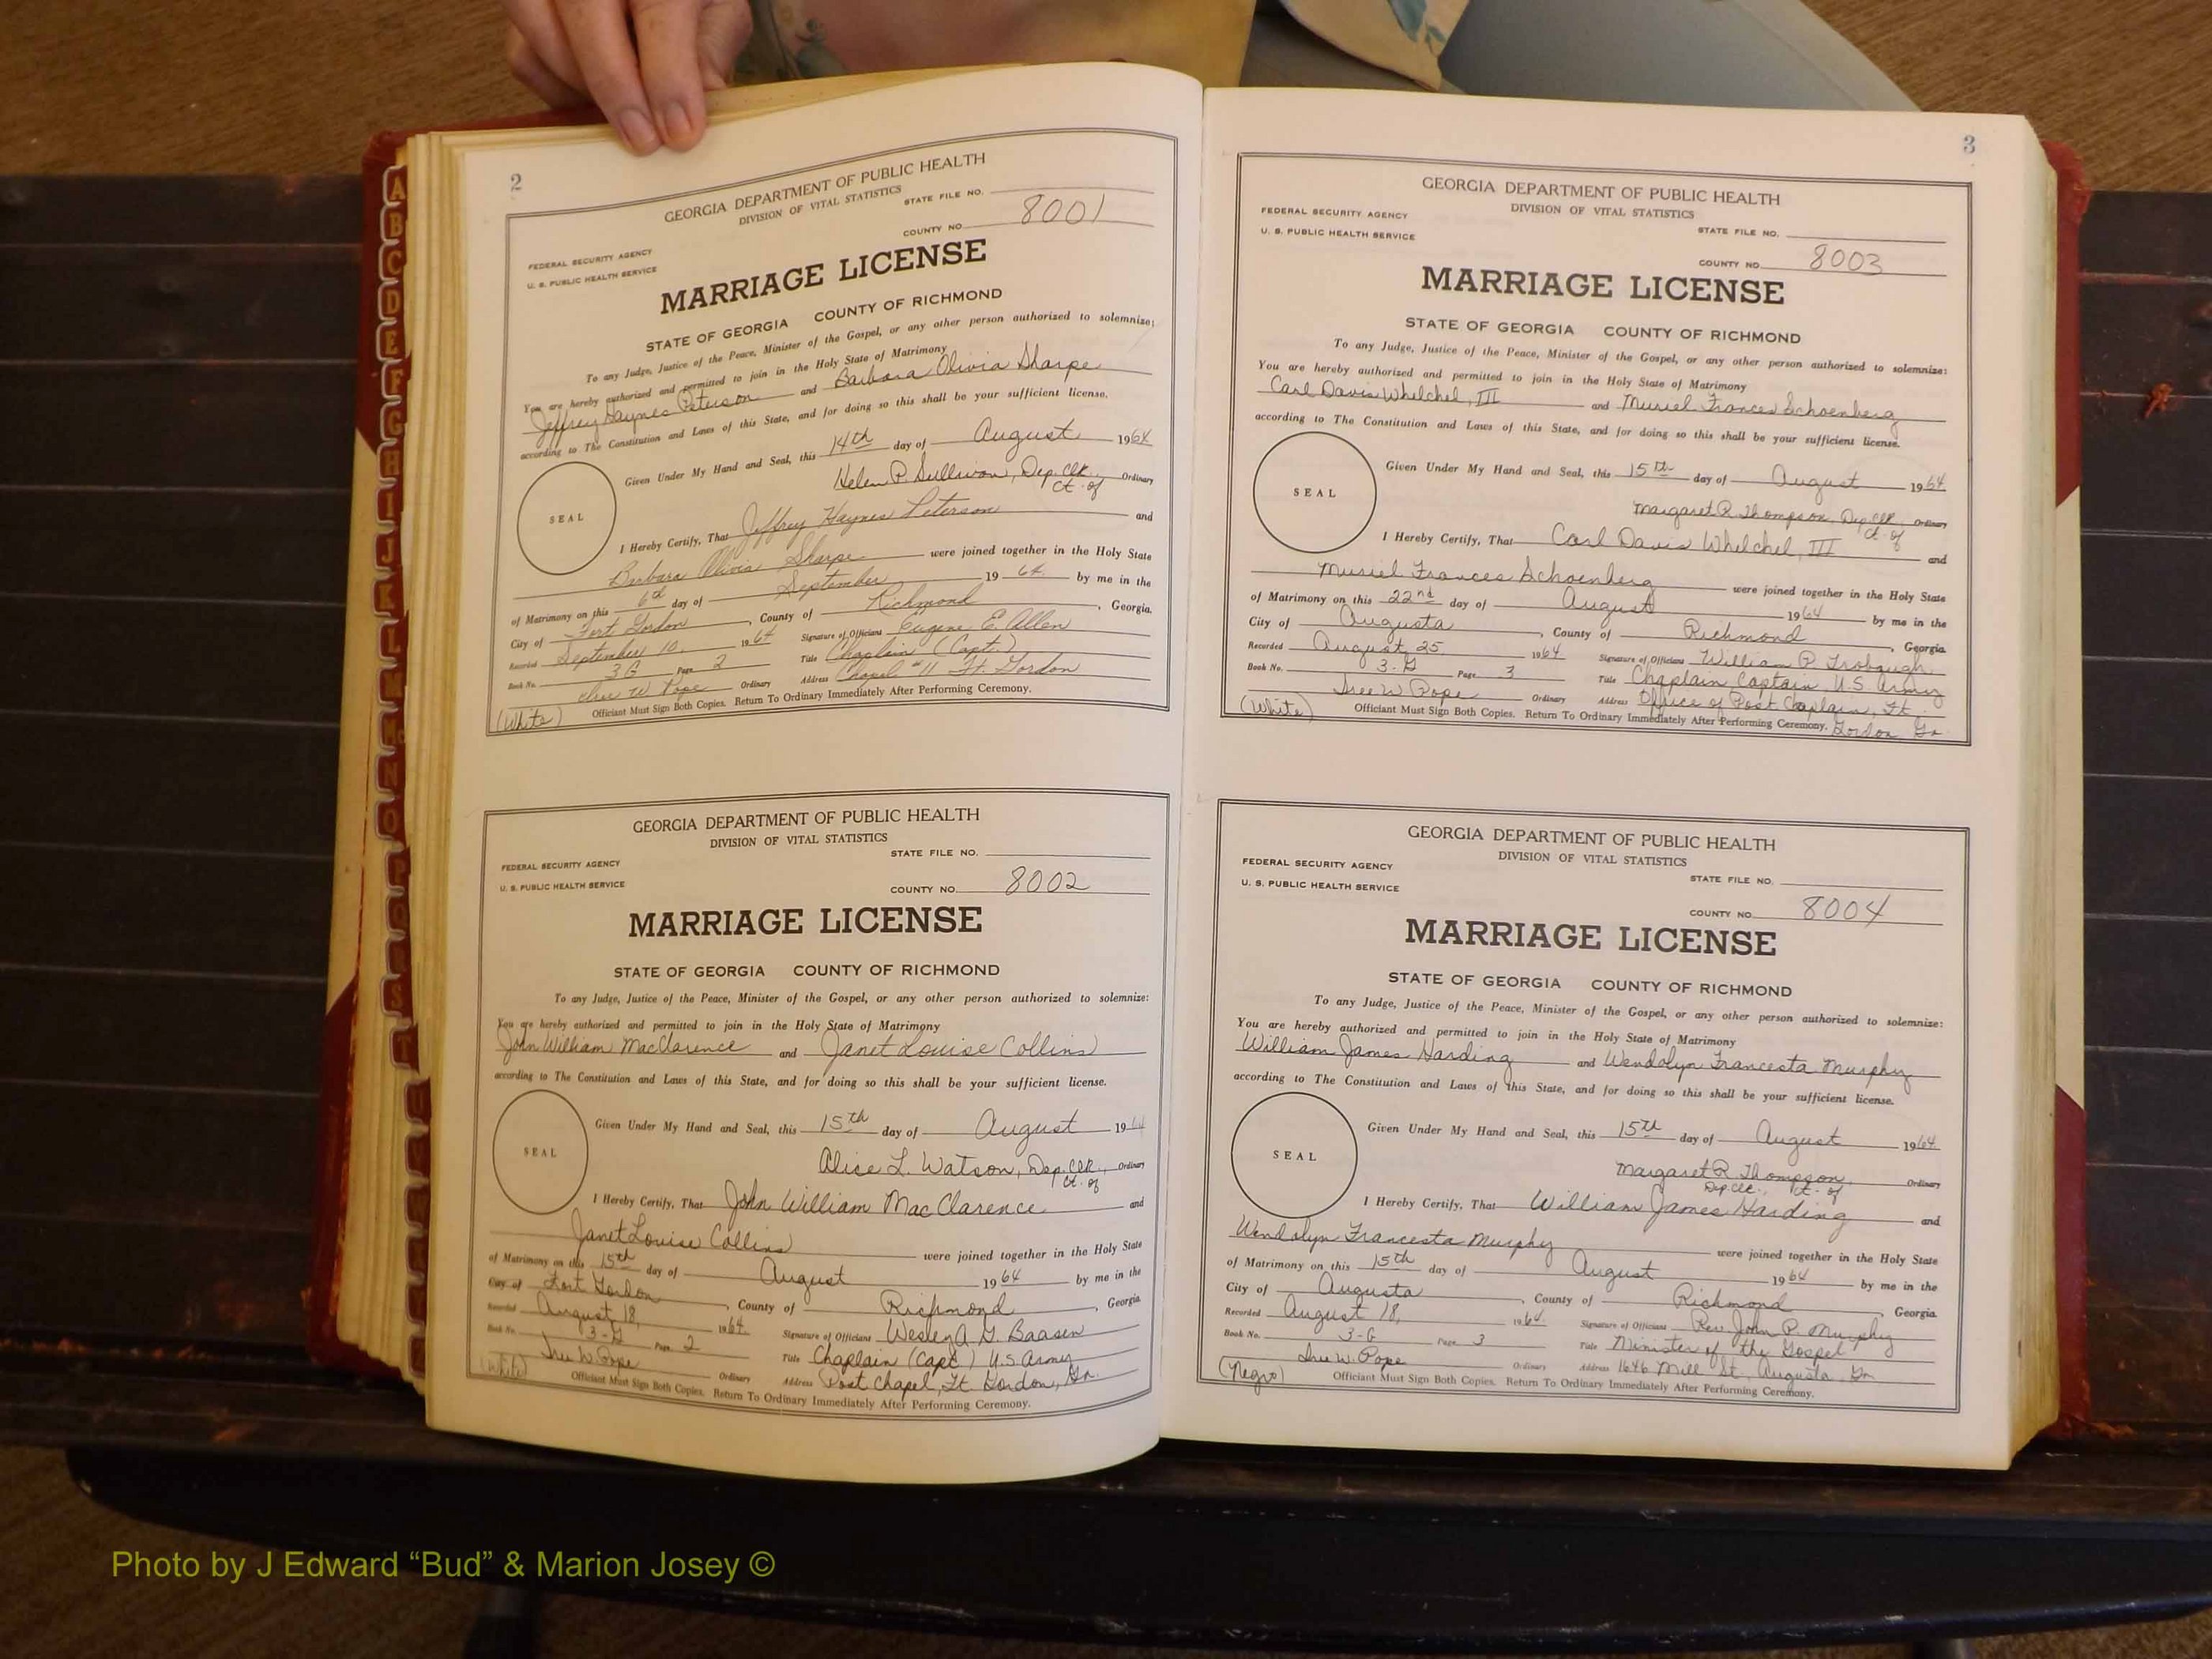 2
GEORGIA DEPARTMENT OF PUBLIC HEALTH
DIVISION OF VITAL STATISTICS
STATE FILE NO.
FEDERAL SECURITY AGENCY
U. S. PUBLIC HEALTH SERVICE
COUNTY NO. 8001
MARRIAGE LICENSE
STATE OF GEORGIA COUNTY OF RICHMOND
To any Judge, Justice of the Peace, Minister of the Gospel, or any other person authorized to solemnize:
You are hereby authorized and permitted to join in the Holy State of Matrimony
Jeffrey Haynes Peterson and Barbara Olivia Sharpe
according to The Constitution and Laws of this State, and for doing so this shall be your sufficient license.
Given Under My Hand and Seal, this 14th day of August 1964
SEAL
Helen P. Sullivan, Dep. Clk. Ordinary
Ct. of
I Hereby Certify, That Jeffrey Haynes Peterson and
Barbara Olivia Sharpe were joined together in the Holy State
of Matrimony on this 6th day of September 1964 by me in the
City of Fort Gordon, County of Richmond, Georgia.
Recorded September 10, 1964 Signature of Officiant Eugene E. Allen
Book No. 3G Page 2 Title Chaplain (Capt.)
W Pope Ordinary Address Chapel #11 Ft. Gordon
(White) Officiant Must Sign Both Copies. Return To Ordinary Immediately After Performing Ceremony.
GEORGIA DEPARTMENT OF PUBLIC HEALTH
DIVISION OF VITAL STATISTICS
STATE FILE NO.
FEDERAL SECURITY AGENCY
U. S. PUBLIC HEALTH SERVICE
COUNTY NO. 8002
MARRIAGE LICENSE
STATE OF GEORGIA COUNTY OF RICHMOND
To any Judge, Justice of the Peace, Minister of the Gospel, or any other person authorized to solemnize:
You are hereby authorized and permitted to join in the Holy State of Matrimony
John William MacClarence and Janet Louise Collins
according to The Constitution and Laws of this State, and for doing so this shall be your sufficient license.
Given Under My Hand and Seal, this 15th day of August 1964
SEAL
Alice L. Watson, Dep. Clk., Ordinary
Ct. of
I Hereby Certify, That John William MacClarence and
Janet Louise Collins were joined together in the Holy State
of Matrimony on this 15th day of August 1964 by me in the
City of Fort Gordon, County of Richmond, Georgia.
Recorded August 18, 1964 Signature of Officiant Wesley G. Baasen
Book No. 3-G Page 2 Title Chaplain (Capt.) U.S. Army
W. Pope Ordinary Address Post Chapel, Ft. Gordon, Ga.
(White) Officiant Must Sign Both Copies. Return To Ordinary Immediately After Performing Ceremony.
3
GEORGIA DEPARTMENT OF PUBLIC HEALTH
DIVISION OF VITAL STATISTICS
FEDERAL SECURITY AGENCY
U. S. PUBLIC HEALTH SERVICE
STATE FILE NO.
COUNTY NO. 8003
MARRIAGE LICENSE
STATE OF GEORGIA COUNTY OF RICHMOND
To any Judge, Justice of the Peace, Minister of the Gospel, or any other person authorized to solemnize:
You are hereby authorized and permitted to join in the Holy State of Matrimony
Carl Davis Whelchel, III and Muriel Frances Schoenberg
according to The Constitution and Laws of this State, and for doing so this shall be your sufficient license.
Given Under My Hand and Seal, this 15th day of August 1964
SEAL
Margaret R. Thompson, Dep. Clk. Ordinary
Ct. of
I Hereby Certify, That Carl Davis Whelchel, III and
Muriel Frances Schoenberg were joined together in the Holy State
of Matrimony on this 22nd day of August 1964 by me in the
City of Augusta, County of Richmond, Georgia.
Recorded August 25 1964 Signature of Officiant William P. Trobaugh
Book No. 3-G Page 3 Title Chaplain Captain U.S. Army
W. Pope Ordinary Address Office of Post Chaplain, Ft.
(White) Officiant Must Sign Both Copies. Return To Ordinary Immediately After Performing Ceremony. Gordon, Ga
GEORGIA DEPARTMENT OF PUBLIC HEALTH
DIVISION OF VITAL STATISTICS
FEDERAL SECURITY AGENCY
U. S. PUBLIC HEALTH SERVICE
STATE FILE NO.
COUNTY NO. 8004
MARRIAGE LICENSE
STATE OF GEORGIA COUNTY OF RICHMOND
To any Judge, Justice of the Peace, Minister of the Gospel, or any other person authorized to solemnize:
You are hereby authorized and permitted to join in the Holy State of Matrimony
William James Harding and Wendolyn Francesta Murphy
according to The Constitution and Laws of this State, and for doing so this shall be your sufficient license.
Given Under My Hand and Seal, this 15th day of August 1964
SEAL
Margaret R. Thompson, Ordinary
Dep. Clk., Ct. of
I Hereby Certify, That William James Harding and
Wendolyn Francesta Murphy were joined together in the Holy State
of Matrimony on this 15th day of August 1964 by me in the
City of Augusta, County of Richmond, Georgia.
Recorded August 18, 1964 Signature of Officiant Rev. John P. Murphy
Book No. 3-G Page 3 Title Minister of the Gospel
W. Pope Ordinary Address 1646 Mill St. Augusta Ga
(Negro) Officiant Must Sign Both Copies. Return To Ordinary Immediately After Performing Ceremony.
A
B
C
D
E
F
G
H
I
J
K
L
M
Mc
N
O
P
Q
R
S
T
Photo by J Edward “Bud” & Marion Josey ©